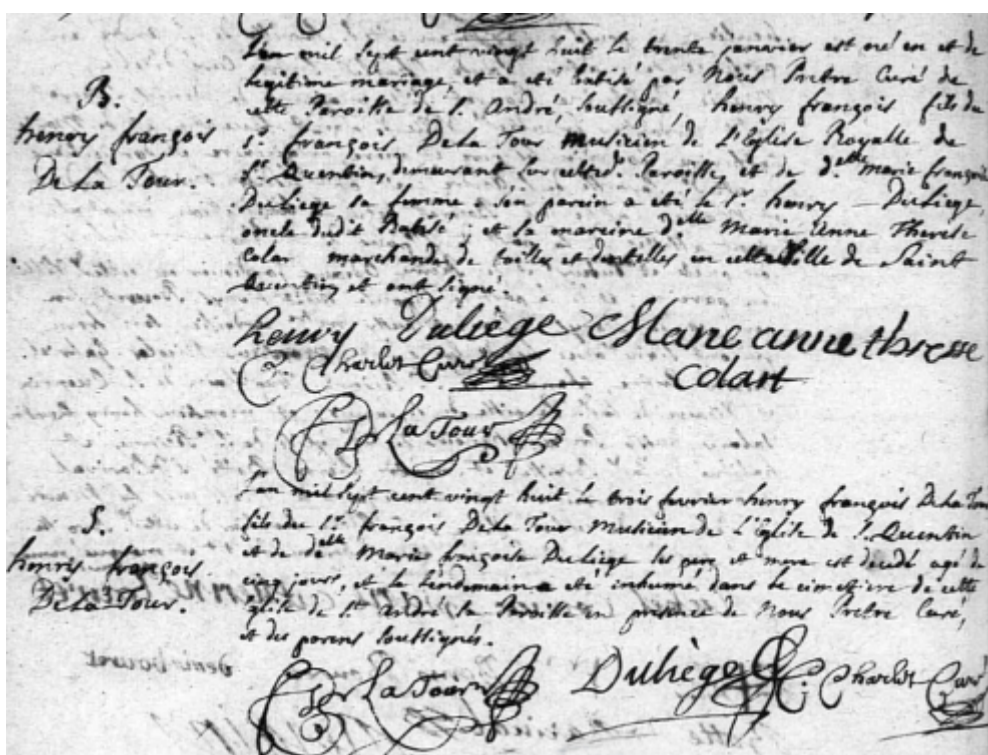 L'an mil sept cent vingt huit le trente janvier est né en et de
B.
legitime mariage, et a eté batisé par Nous Pretre Curé de
cette Paroisse de St. André, soussigné, henry françois fils du
henry françois
De La Tour.
Sr. françois De La Tour musicien de L'Eglise Royalle de
St. Quentin, demeurant sur cette d. Paroisse, et de d.elle marie françoise
Duliege sa femme son parein a eté le Sr. henry Duliege,
oncle dudit Batisé, et la mareine d.elle Marie Anne Therese
Colar marchande de toilles et dentelles en cette Ville de Saint
Quentin, et ont signé.
henry Duliège Marie anne theresse
C. Charlet Curé colart
De La Tour
L'an mil sept cent vingt huit le trois fevrier henry françois De La Tour
S.
fils du Sr. françois De La Tour Musicien de L'Eglise de St. Quentin
et de delle Marie françoise Duliege ses pere et mere est decedé agé de
henry françois
De La Tour.
cinq jours, et le lendemain a eté inhumé dans le cimetiere de cette
eglise de St. André sa Paroisse en presence de Nous Pretre Curé,
et des parens soussignés.
De La Tour Duliège C. Charlet Curé